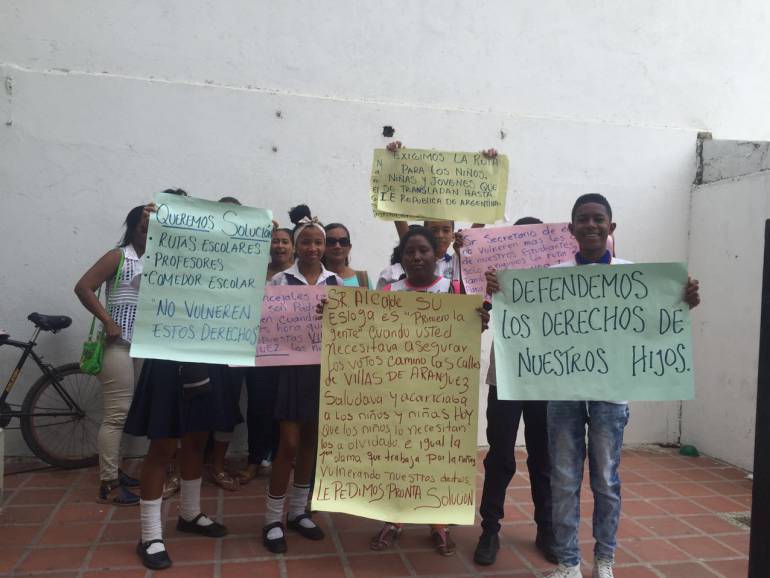 QUEREMOS SOLUCIÓN
RUTAS ESCOLARES
PROFESORES
COMEDOR ESCOLAR
"NO VULNEREN
ESTOS DERECHOS"
EXIGIMOS LA RUTA
PARA LOS NIÑOS,
NIÑAS Y JOVENES QUE
SE TRANSLADAN HASTA
I.E REPUBLICA DE ARGENTINA
Sr Secretario de
no vulneren mas los
de nuestros estudiantes
SR ALCALDE SU
ESLOGA ES "Primero la
gente" cuando usted
Necesitava asegurar
los votos camino las calles
de VILLAS DE ARANJUEZ
Saludava y acariciaba
a los niños y niñas Hoy
que los niños lo necesitan
los a olvidado e igual la
1ª dama que trabaja por la niñez
vulnerando nuestros
LE PEDIMOS PRONTA SOLUCIÓN
DEFENDEMOS
LOS DERECHOS DE
NUESTROS HIJOS.